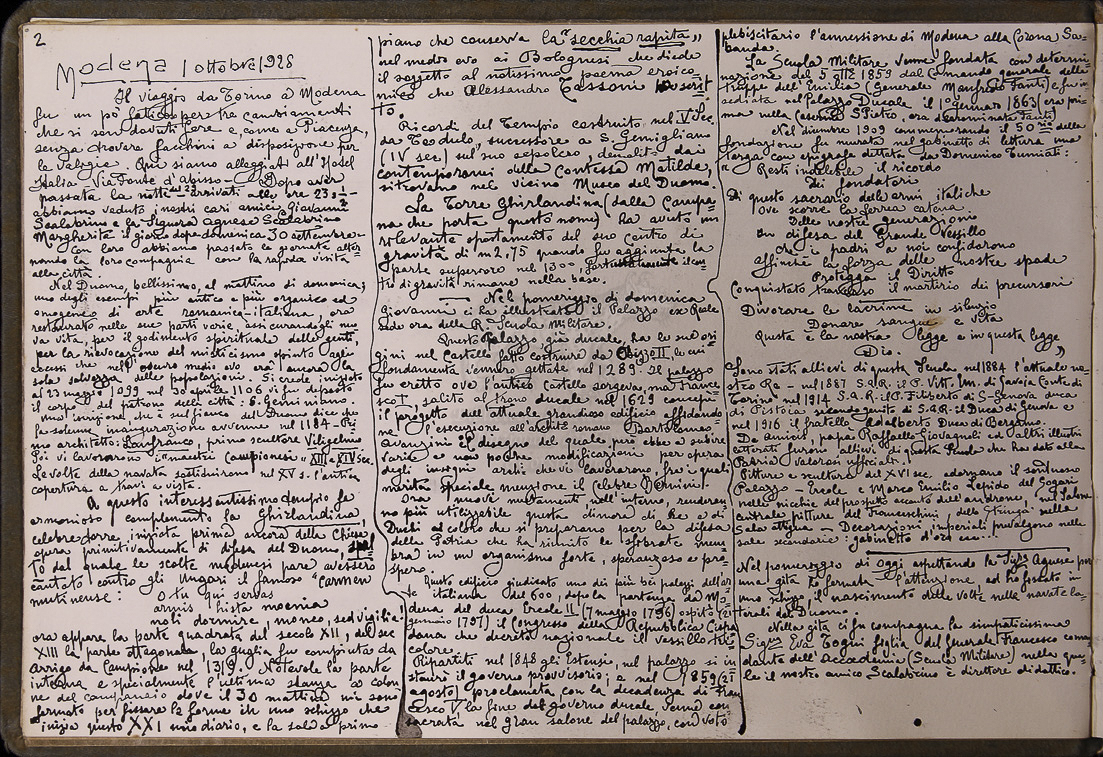 2
Modena 1 ottobre 1928
Il viaggio da Torino a Modena
fu un pò faticoso per tre cambiamenti
che si son dovuti fare e, come a Piacenza,
senza trovare facchini a disposizione per
le valigie. Qui siamo alloggiati all'Hotel
Italia - Via Fonte d'abisso - Dopo aver
passata la notte del 29 arrivati alle ore 23,
abbiamo veduto i nostri cari amici Giovanni
Scalabrino e la Signora Agnese Scalabrino
Margherita il giorno dopo domenica 30 settembre
Con loro abbiamo passato le giornate alter=
nando la loro compagnia con la rapida visita
alla città.
Nel Duomo, bellissimo, al mattino di domenica;
uno degli esempi più antico e più organico ed
omogeneo di arte romanica-italiana, ora
restaurato nelle sue parti varie, assicurandogli nuo
va vita, per il godimento spirituale delle genti,
per la rievocazione del misticismo spinto agli
eccessi che nell'oscuro medio evo era ancora la
sola salvezza delle popolazioni. Si crede iniziato
al 23 maggio 1099 nel 30 aprile 1106 vi fu deposto
il corpo del patrono della città: S. Geminiano.
L'iscrizione che è sul fianco del Duomo dice che
la solenne inaugurazione avvenne nel 1184 - Pri
mo architetto: Lanfranco, primo scultore Viligelmo
Poi vi lavorarono i "maestri Campionesi" XII e XIV sec.
Le volte della navata sostituirono nel XV s. l'antica
copertura a travi a vista.
A questo interessantissimo tempio fa
armonioso complemento la Ghirlandina,
celebre torre, iniziata prima ancora della Chiesa
opera primitivamente di difesa del Duomo,
dal quale le scolte modenesi pare avessero
cantato contro gli Ungari il famoso "Carmen
mutinense:
O tu qui servas
armis hista moenia
noli dormire, moneo, sed vigila!
ora appare la parte quadrata del secolo XII, del sec
XIII la parte ottagonale, la guglia fu compiuta da
Arrigo da Campione nel 1319. Notevole la parte
interna e specialmente l'ultima stanza a colon
ne del campanaio dove il 30 mattina mi sono
fermato per fissare la forma in uno schizzo che
inizia questo XXI mio diario, e la sala a primo
piano che conserva la "secchia rapita"
nel medio evo ai Bolognesi che diede
il soggetto al notissimo poema eroico=
mico che Alessandro Tassoni scrit
to.
Ricordi del Tempio costruito nel V Sec.
da Teodulo, successore a S. Gemigliano
(IV sec) sul suo sepolcro, demoliti dai
contemporanei della Contessa Matilde,
si trovano nel vicino Museo del Duomo.
La Torre Ghirlandina (dalla Campa
na che porta questo nome) ha avuto un
rilevante spostamento del suo centro di
gravità di m 2,75 quando fu aggiunta la
parte superiore nel 1300, fortunatamente il cen=
tro di gravità rimane nella base.
Nel pomeriggio di domenica
Giovanni ci ha illustrato il Palazzo ex Reale
sede ora della R. Scuola Militare.
Questo Palazzo, già ducale, ha le sue ori
gini nel Castello fatto costruire da Obizzo II, le cui
fondamenta vennero gettate nel 1289. Il palazzo
fu eretto ove l'antico Castello sorgeva, ma France
sco I, salito al trono ducale nel 1629 concepì
il progetto dell'attuale grandioso edificio affidando
ne l'esecuzione all'archit. romano Bartolomeo
Avanzini il disegno del quale però ebbe a subire
varie e non poche modificazioni per opera
degli insigni archi che vi lavorarono, fra i quali
merita speciale menzione il celebre Bernini.
Ora i nuovi mutamenti nell'interno, rendono
no più utilizzabile questa dimora di Re e di
Duchi a coloro che si preparano per la difesa
della Patria che ha riunito le sue sparse mem
bra in un organismo forte, speranzoso e pro
spero.
Questo edificio giudicato uno dei più bei palazzi dell'ar
te italiana del 600, dopo la partenza da Mo
dena del duca Ercole II (7 maggio 1796) ospitò (21
gennaio 1797) il Congresso della Repubblica Cispa
dana che decretò nazionale il vessillo tri
colore.
Ripartiti nel 1848 gli Estensi, nel palazzo si in
staurò il governo provvisorio; e nel 1859 (21
agosto) proclamata con la decadenza di Fran
cesco V la fine del governo ducale venne con
sacrata nel gran salone del palazzo, con voto
plebiscitario l'annessione di Modena alla Corona Sa=
bauda.
La Scuola Militare venne fondata con determi
nazione del 5 ott. 1859 dal Comando generale delle
truppe dell'Emilia (Generale Manfredo Fanti) e fu in
sediata nel Palazzo Ducale il 1° Gennaio 1863 (era pri=
ma nella caserma S. Pietro, ora denominata Fanti)
Nel dicembre 1909 commemorando il 50° della
fondazione fu murata nel gabinetto di lettura una
targa con epigrafe dettata da Domenico Tumiati:
"Resti indelebile il ricordo
Dei fondatori
Di questo sacrario delle armi italiche
Ove scorre la ferrea catena
Delle nostre generazioni
In difesa del Grande Vessillo
Che i padri a noi confidarono
Affinchè la forza delle nostre spade
Protegga il Diritto
Conquistato il martirio dei precursori
Divorare le lacrime in silenzio
Donare sangue e vita
Questa è la nostra legge e in questa legge
Dio. "
Sono stati allievi di questa Scuola nel 1884 l'attuale no=
stro Re - nel 1887 S.A.R. il P. Vitt. Em. di Savoia Conte di
Torino nel 1914 S.A.R. il P. Filiberto di S-Genova duca
di Pistoia secondogenito di S.A.R. il Duca di Genova e
nel 1916 il fratello Adalberto Duca di Bergamo.
De Amicis, papà Raffaello Giovagnoli ed altri illustri
letterati furono allievi di questa Scuola che ha dato alla
Patria valorosi ufficiali.
Pitture e sculture del XVI sec. adornano il sontuoso
Palazzo - Ercole e Marco Emilio Lepido del Sogari
nelle nicchie del prospetto accanto dell'androne, nel Salone
centrale pitture del Franceschini, dello Stringa nella
Sala attigua - Decorazioni imperiali prevalgono nelle
sale secondarie: gabinetto d'oro ecc...
Nel pomeriggio di oggi aspettando la Sig.ra Agnese per
una gita si fermata l'attenzione, ed ho fissato in
uno schizzo, il nascimento delle volte nella navate la=
terali del Duomo.
Nella gita ci fu compagna la simpaticissima
Sig.na Eva Togni figlia del Generale Francesco coman
dante dell'Accademia (Scuola Militare) nella qua=
le il nostro amico Scalabrino è direttore didattico.